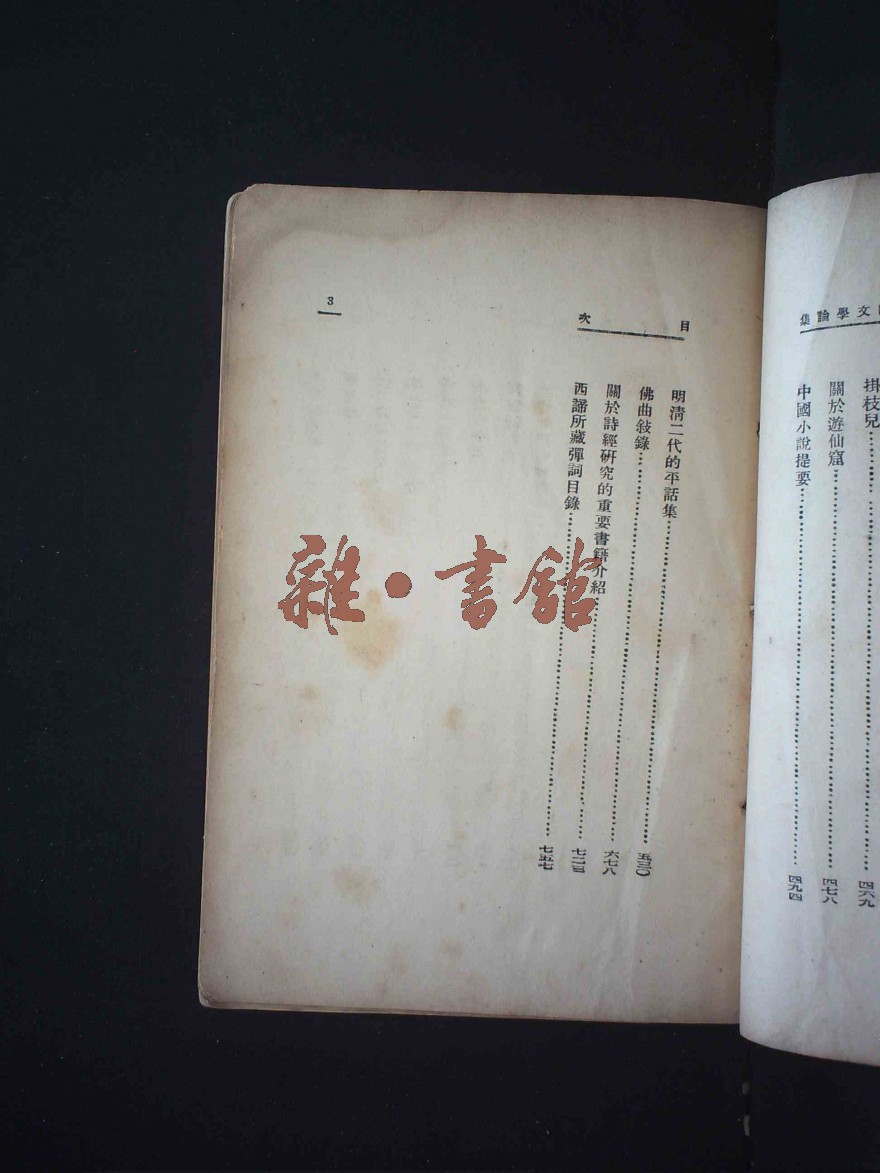 文學論集
掛枝兒……四六九
關於遊仙窟……四七八
中國小說提要……四九四
目次
明清二代的平話集……五三〇
佛曲敍錄……六七八
關於詩經研究的重要書籍介紹……七二
西諦所藏彈詞目錄……七五七
3
雜·書館